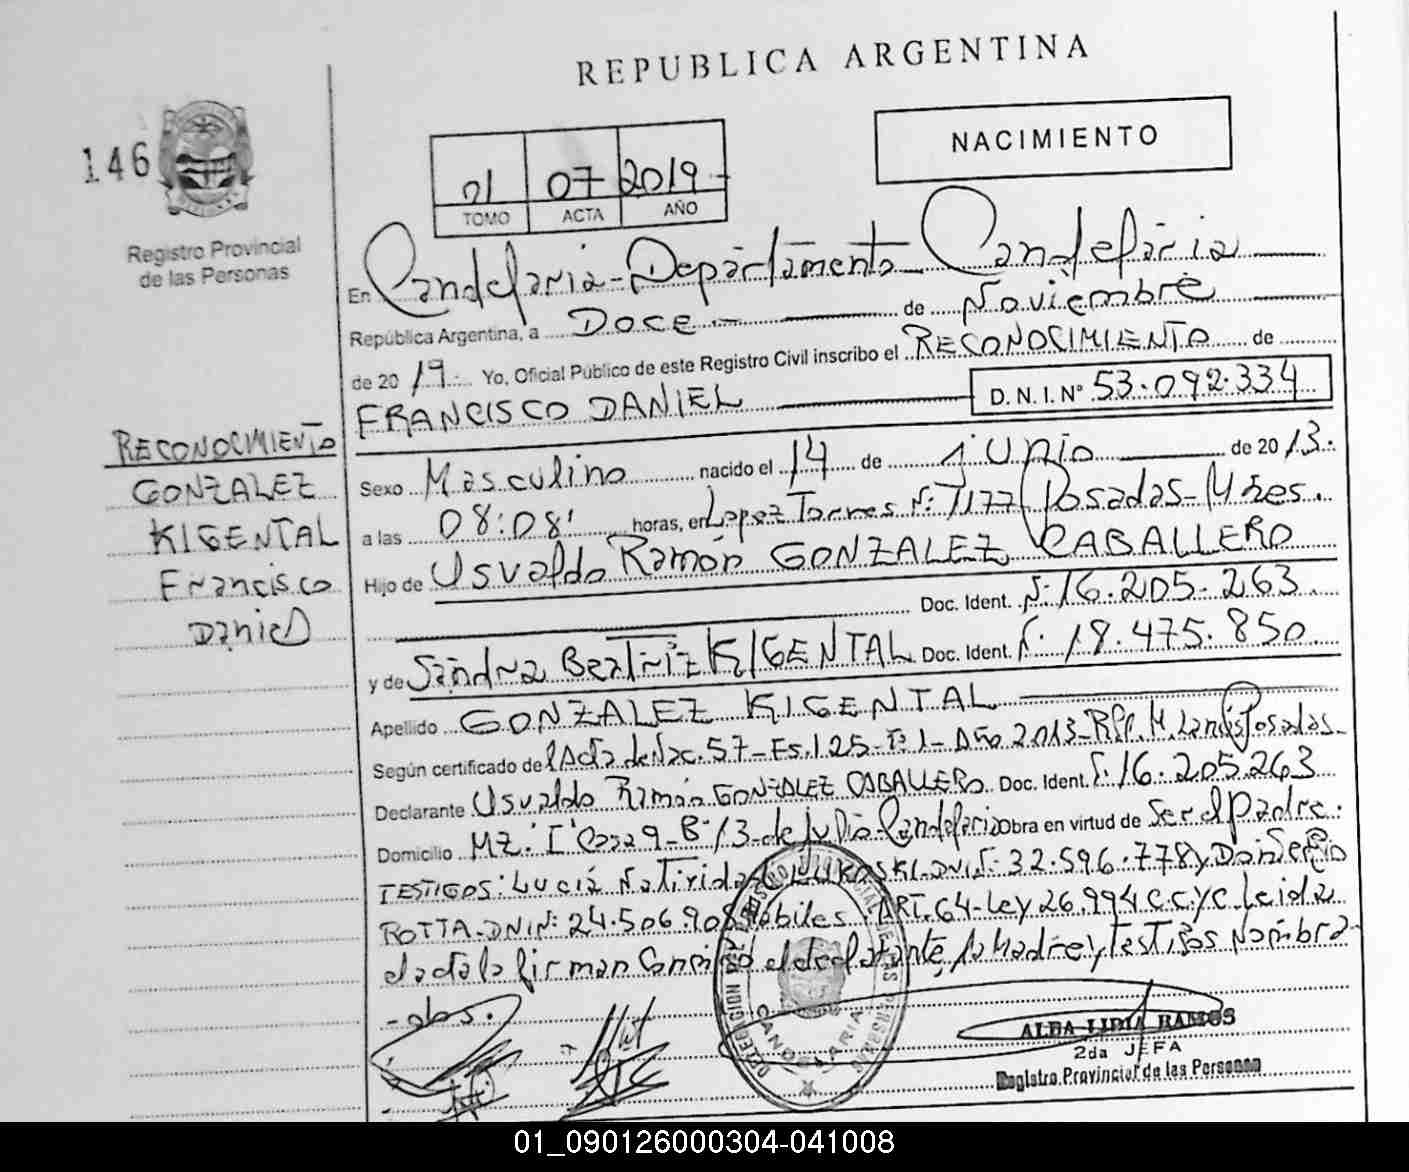 REPUBLICA ARGENTINA
146
NACIMIENTO
01 07 2019
TOMO ACTA AÑO
Registro Provincial
de las Personas
En Candelaria - Departamento Candelaria
República Argentina, a Doce.- de Noviembre
de 20 19. Yo, Oficial Público de este Registro Civil inscribo el RECONOCIMIENTO de
FRANCISCO DANIEL D.N.I. N° 53.092.334
RECONOCIMIENTO
GONZALEZ
KIGENTAL
Francisco
Daniel
Sexo Masculino nacido el 14 de junio de 20 13.
a las 08:08' horas, en Lopez Torres N: 1177 Posadas-Mnes.
Hijo de Usvaldo Ramón GONZALEZ CABALLERO
Doc. Ident. N: 16.205.263
y de Sandra Beatriz KIGENTAL Doc. Ident. N. 18.475.850
Apellido GONZALEZ KIGENTAL
Según certificado de l Acta de Nac. 57-Es.125-T: 1- Año 2013- M. Posadas-
Declarante Usvaldo Ramón GONZALEZ CABALLERO Doc. Ident. N. 16.205.263
Domicilio MZ: I Casa 9-B: 13-de Julio-Candelaria Obra en virtud de Ser el Padre.
TESTIGOS: Lucia Natividad DNI N: 32.596.778 y Daniel Sergio
ROTTA-DNI N: 24.506.908 Hábiles ART. 64-Ley 26.994 C.C.yC. leida
el acta la firman Conmigo el declarante, la Madre y Testigos Nombra-
-dos.
REGISTRO PROVINCIAL DE LAS PERSONAS
CANDELARIA
ALBA LIDIA RAMOS
2da JEFA
Registro Provincial de las Personas
01_090126000304-041008